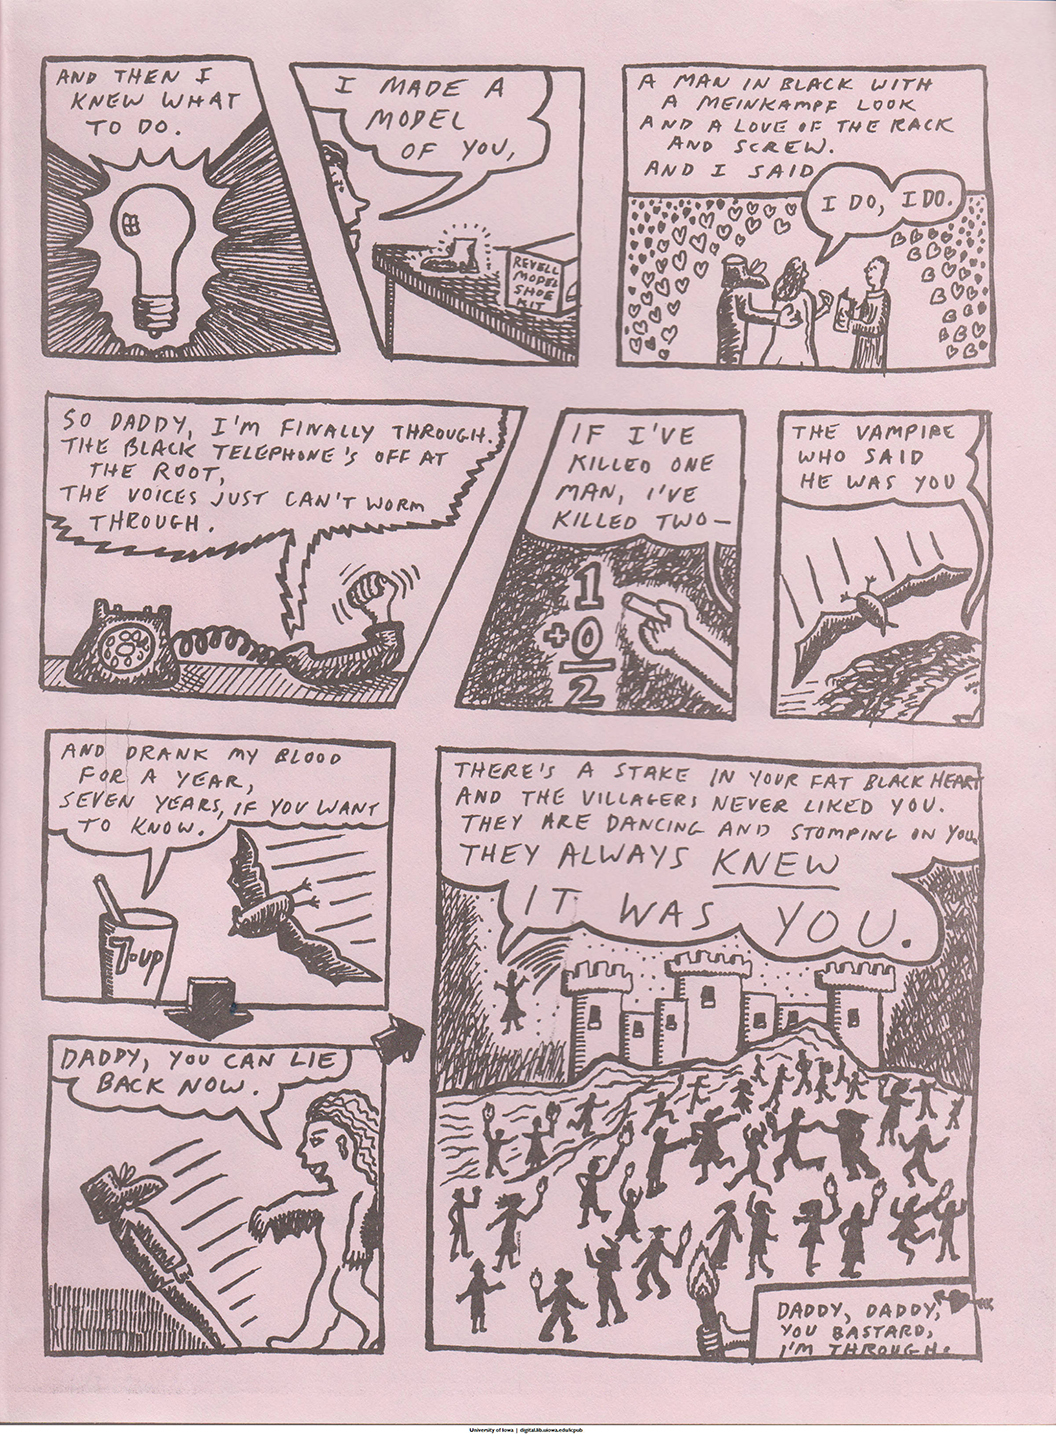 AND THEN I
KNEW WHAT
TO DO.
I MADE A
MODEL
OF YOU,
REVELL
MODEL
SHOE
KIT
A MAN IN BLACK WITH
A MEINKAMPF LOOK
AND A LOVE OF THE RACK
AND SCREW.
AND I SAID
I DO, I DO.
SO DADDY, I'M FINALLY THROUGH.
THE BLACK TELEPHONE'S OFF AT
THE ROOT,
THE VOICES JUST CAN'T WORM
THROUGH.
IF I'VE
KILLED ONE
MAN, I'VE
KILLED TWO—
1
+0
2
THE VAMPIRE
WHO SAID
HE WAS YOU
AND DRANK MY BLOOD
FOR A YEAR,
SEVEN YEARS, IF YOU WANT
TO KNOW.
7-UP
DADDY, YOU CAN LIE
BACK NOW.
THERE'S A STAKE IN YOUR FAT BLACK HEART
AND THE VILLAGERS NEVER LIKED YOU.
THEY ARE DANCING AND STOMPING ON YOU.
THEY ALWAYS KNEW
IT WAS YOU.
DADDY, DADDY,
YOU BASTARD,
I'M THROUGH.
University of Iowa | digital.lib.uiowa.edu/icpub